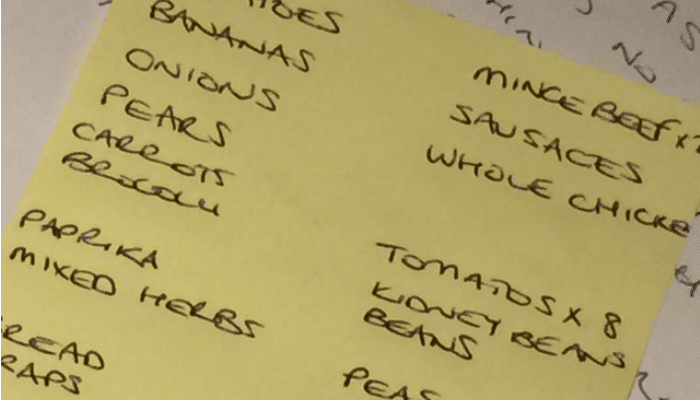 BANANAS
ONIONS
PEARS
CARROTS
BROCOLLI
PAPRIKA
MIXED HERBS
READ
RAPS
MINCE BEEF x
SAUSAGES
WHOLE CHICKE
TOMATOS x 8
KIDNEY BEANS
BEANS
PEAS
NO